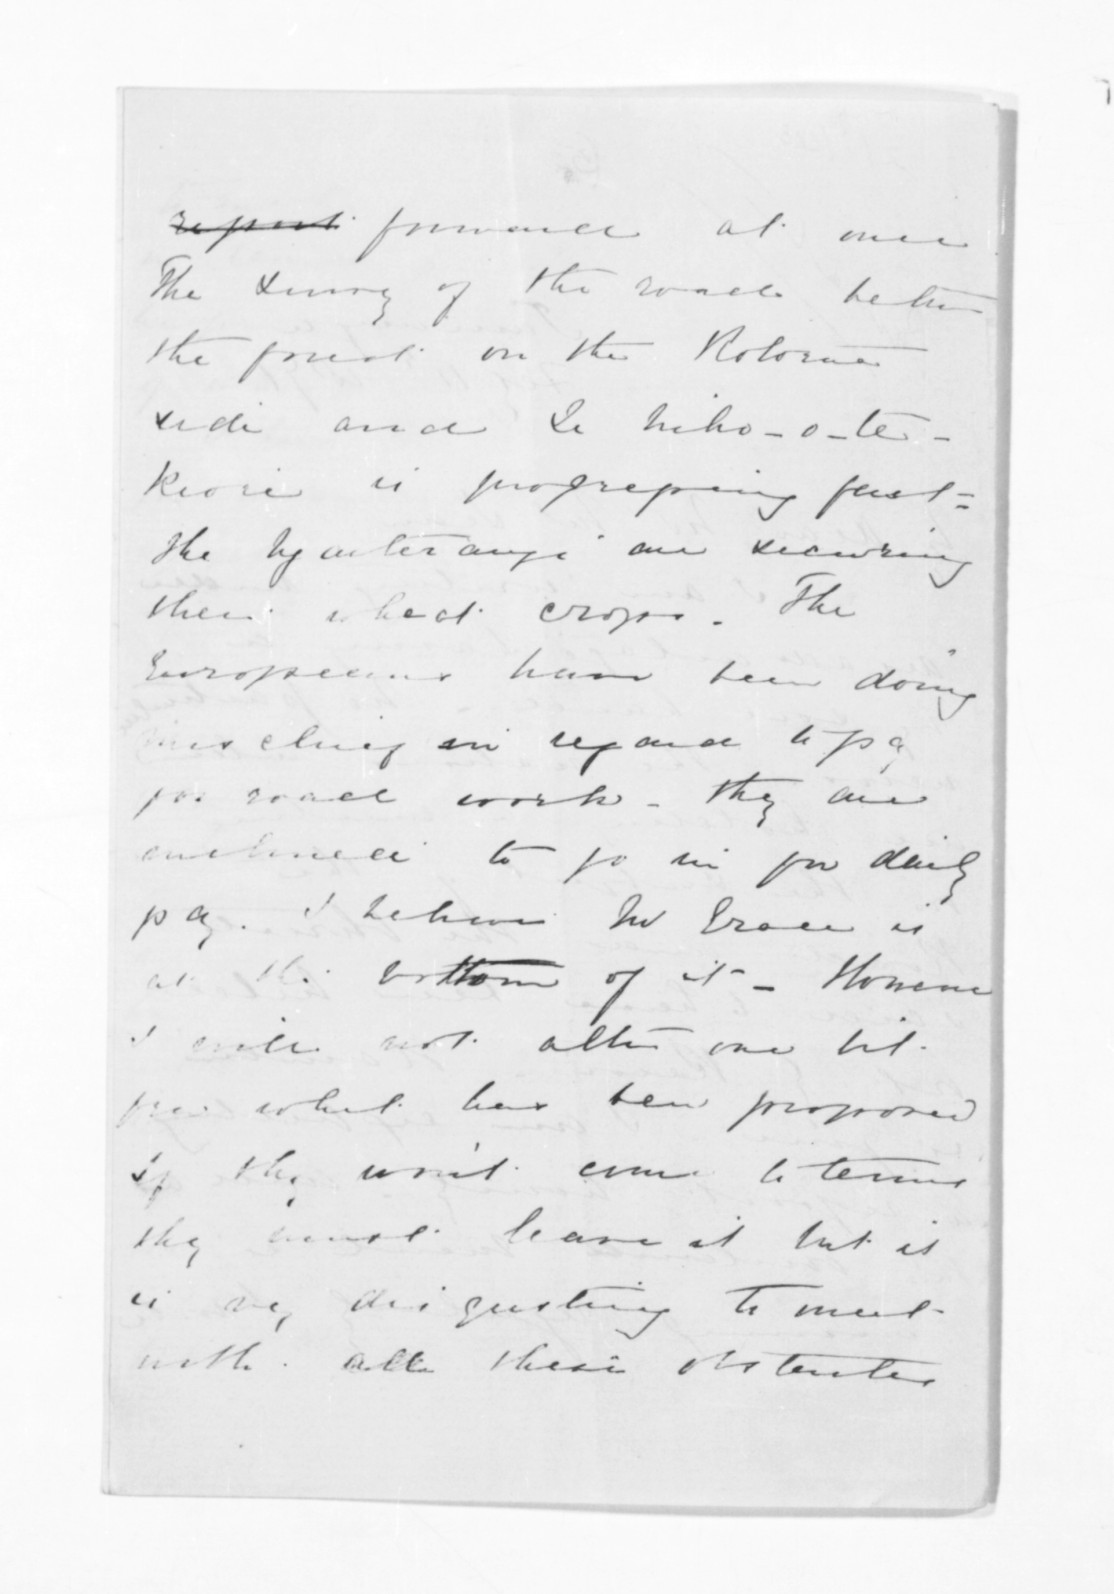 ~~report~~ forward at once
The survey of the road betn
the forest on the Rotorua
side and Te Niho-o-te-
Kiore is progressing fast =
the Ngaiterangi are securing
their wheat crops. The
Europeans have been doing
mischief in regard to pay
for road work - they are
inclined to go in for daily
pay. I believe Mr Grace is
at the bottom of it - However
I will not alter one bit
from what has been proposed
If they won't come to terms
they must leave it but it
is very disgusting to meet
with all these obstacles